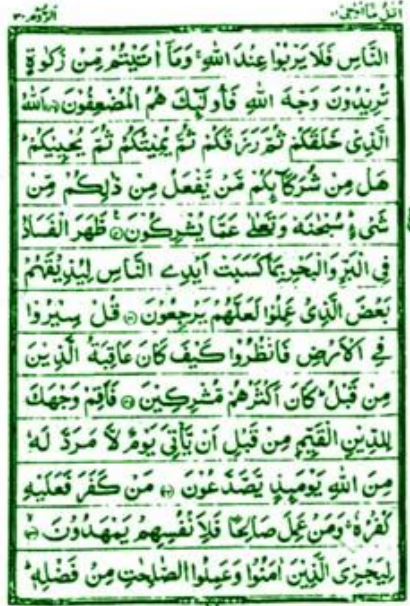 اتل مآ اوحی ۲۱
الروم ۳۰
النَّاسِ فَلَا يَرْبُوا عِنْدَ اللّٰهِ ۚ وَمَاۤ اٰتَيْتُمْ مِّنْ زَكٰوةٍ
تُرِيْدُوْنَ وَجْهَ اللّٰهِ فَاُولٰٓئِكَ هُمُ الْمُضْعِفُوْنَ ۝ اَللّٰهُ
الَّذِيْ خَلَقَكُمْ ثُمَّ رَزَقَكُمْ ثُمَّ يُمِيْتُكُمْ ثُمَّ يُحْيِيْكُمْ ؕ
هَلْ مِنْ شُرَكَآئِكُمْ مَّنْ يَّفْعَلُ مِنْ ذٰلِكُمْ مِّنْ
شَيْءٍ ؕ سُبْحٰنَهٗ وَتَعٰلٰى عَمَّا يُشْرِكُوْنَ ۝ ظَهَرَ الْفَسَادُ
فِي الْبَرِّ وَالْبَحْرِ بِمَا كَسَبَتْ اَيْدِي النَّاسِ لِيُذِيْقَهُمْ
بَعْضَ الَّذِيْ عَمِلُوْا لَعَلَّهُمْ يَرْجِعُوْنَ ۝ قُلْ سِيْرُوْا
فِي الْاَرْضِ فَانْظُرُوْا كَيْفَ كَانَ عَاقِبَةُ الَّذِيْنَ
مِنْ قَبْلُ ؕ كَانَ اَكْثَرُهُمْ مُّشْرِكِيْنَ ۝ فَاَقِمْ وَجْهَكَ
لِلدِّيْنِ الْقَيِّمِ مِنْ قَبْلِ اَنْ يَّاْتِيَ يَوْمٌ لَّا مَرَدَّ لَهٗ
مِنَ اللّٰهِ يَوْمَئِذٍ يَّصَّدَّعُوْنَ ۝ مَنْ كَفَرَ فَعَلَيْهِ
كُفْرُهٗ ۚ وَمَنْ عَمِلَ صَالِحًا فَلِاَنْفُسِهِمْ يَمْهَدُوْنَ ۝
لِيَجْزِيَ الَّذِيْنَ اٰمَنُوْا وَعَمِلُوا الصّٰلِحٰتِ مِنْ فَضْلِهٖ ؕ